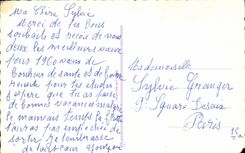 Ma Chère Sylvie
Merci de tes bons
souhaits et reçois de nous
deux les meilleurs vœux
pour 1960 vœux de
bonheur de santé et de bonne
réussite pour tes études
j'espère que tu as passé
de bonnes vacances malgré
le mauvais temps
t'auras pas empêchée de
sortir
Mademoiselle
Sylvie Granger
9 Square Desaix
Paris
15e